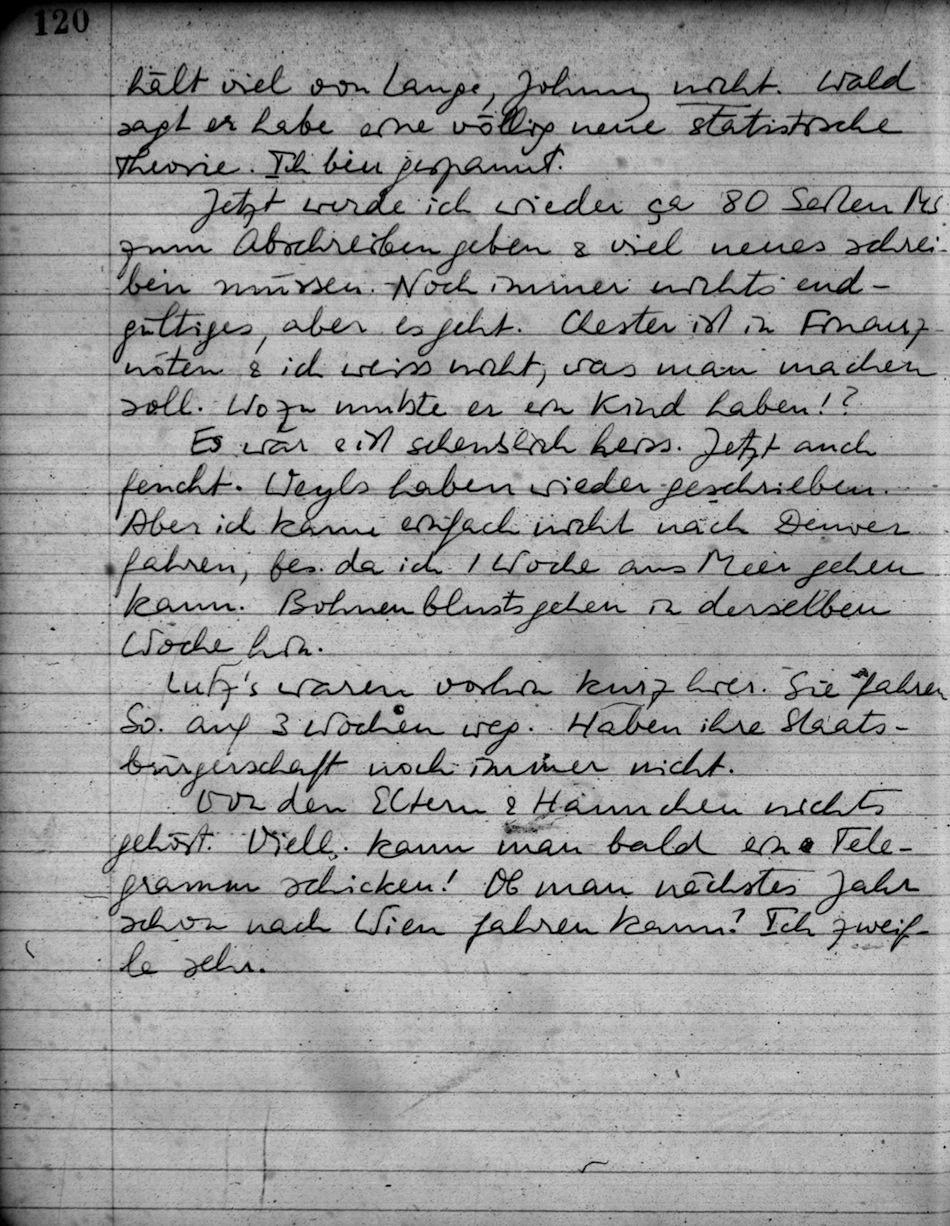 120
hält viel von Lange, Johnny nicht. Wald
sagt er habe eine völlig neue statistische
Theorie. Ich bin gespannt.
Jetzt werde ich wieder ca 80 Seiten Ms
zum Abschreiben geben & viel neues schrei-
ben müssen. Noch immer nichts end-
gültiges, aber es geht. Chester ist in Finanz-
nöten & ich weiss nicht, was man machen
soll. Wozu musste er ein Kind haben!?
Es war & ist scheusslich heiss. Jetzt auch
feucht. Weyls haben wieder geschrieben.
Aber ich kann einfach nicht nach Denver
fahren, bes. da ich 1 Woche ans Meer gehen
kann. Bohnenblusts gehen in derselben
Woche hin.
Lutz's waren vorhin kurz hier. Sie fahren
So. auf 3 Wochen weg. Haben ihre Staats-
bürgerschaft noch immer nicht.
Von den Eltern & Hannchen nichts
gehört. Viell. kann man bald ein Tele-
gramm schicken! Ob man nächstes Jahr
schon nach Wien fahren kann? Ich zweif-
le sehr.